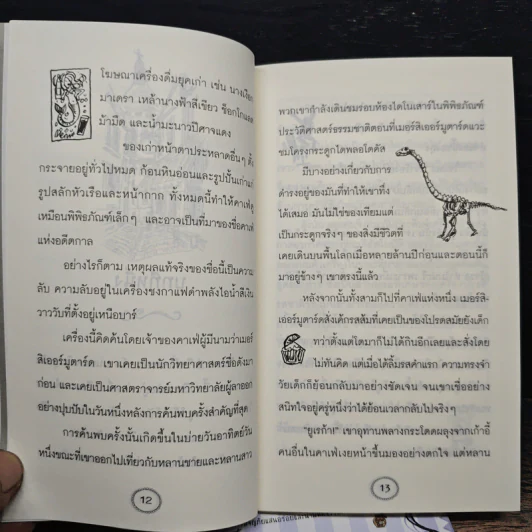 โฆษณาเครื่องดื่มยุคเก่า เช่น นางเงือก
มาเดรา เหล้านางฟ้าสีเขียว ช็อกโกแลต
ม้ามืด และน้ำมะนาวปีศาจแดง
ของเก่าหน้าตาประหลาดอื่นๆ
กระจายอยู่ทั่วไปหมด ก้อนหินอ่อนและรูปปั้นเก่าแก่
รูปสลักหัวเรือและหน้ากาก ทั้งหมดนี้ทำให้คาเฟ่ดู
เหมือนพิพิธภัณฑ์เล็กๆ และอาจเป็นที่มาของชื่อคาเฟ่
แห่งอดีตกาล
อย่างไรก็ตาม เหตุผลแท้จริงของชื่อนี้เป็นความ
ลับ ความลับอยู่ในเครื่องชงกาแฟดำพลังไอน้ำสีเงิน
วาววับที่ตั้งอยู่เหนือบาร์
เครื่องนี้คิดค้นโดยเจ้าของคาเฟ่ผู้มีนามว่าเมอร์
สิเออร์มูตาร์ด เขาเคยเป็นนักวิทยาศาสตร์ชื่อดังมา
ก่อน และเคยเป็นศาสตราจารย์มหาวิทยาลัยผู้ลาออก
อย่างปุบปับในวันหนึ่งหลังการค้นพบครั้งสำคัญที่สุด
การค้นพบครั้งนั้นเกิดขึ้นในบ่ายวันอาทิตย์วัน
หนึ่งขณะที่เขาออกไปเที่ยวกับหลานชายและหลานสาว
12
พวกเขากำลังเดินชมรอบห้องไดโนเสาร์ในพิพิธภัณฑ์
ประวัติศาสตร์ธรรมชาติตอนที่เมอร์สิเออร์มูตาร์ดแวะ
ชมโครงกระดูกไดพลอโดคัส
มีบางอย่างเกี่ยวกับการ
ดำรงอยู่ของมันที่ทำให้เขาทึ่ง
ได้เสมอ มันไม่ใช่ของเทียมแต่
เป็นกระดูกจริงๆ ของสิ่งมีชีวิตที่
เคยเดินบนพื้นโลกเมื่อหลายล้านปีก่อนและตอนนี้ก็
มาอยู่ข้างๆ เขาตรงนี้แล้ว
หลังจากนั้นทั้งสามก็ไปที่คาเฟ่แห่งหนึ่ง เมอร์สิ-
เออร์มูตาร์ดสั่งเค้กรสส้มที่เคยเป็นของโปรดสมัยยังเด็ก
ทว่าตั้งแต่โตมาก็ไม่ได้กินอีกเลยและสั่งโดย
ไม่ทันคิด แต่เมื่อได้ลิ้มรสคำแรก ความทรงจำ
วัยเด็กก็ย้อนกลับมาอย่างชัดเจน จนเขาเชื่ออย่าง
สนิทใจอยู่ครู่หนึ่งว่าได้ย้อนเวลากลับไปจริงๆ
"ยูเรก้า!" เขาอุทานพลางกระโดดผลุงจากเก้าอี้
คนอื่นในคาเฟ่เงยหน้าขึ้นมองอย่างตกใจ แต่หลาน
13